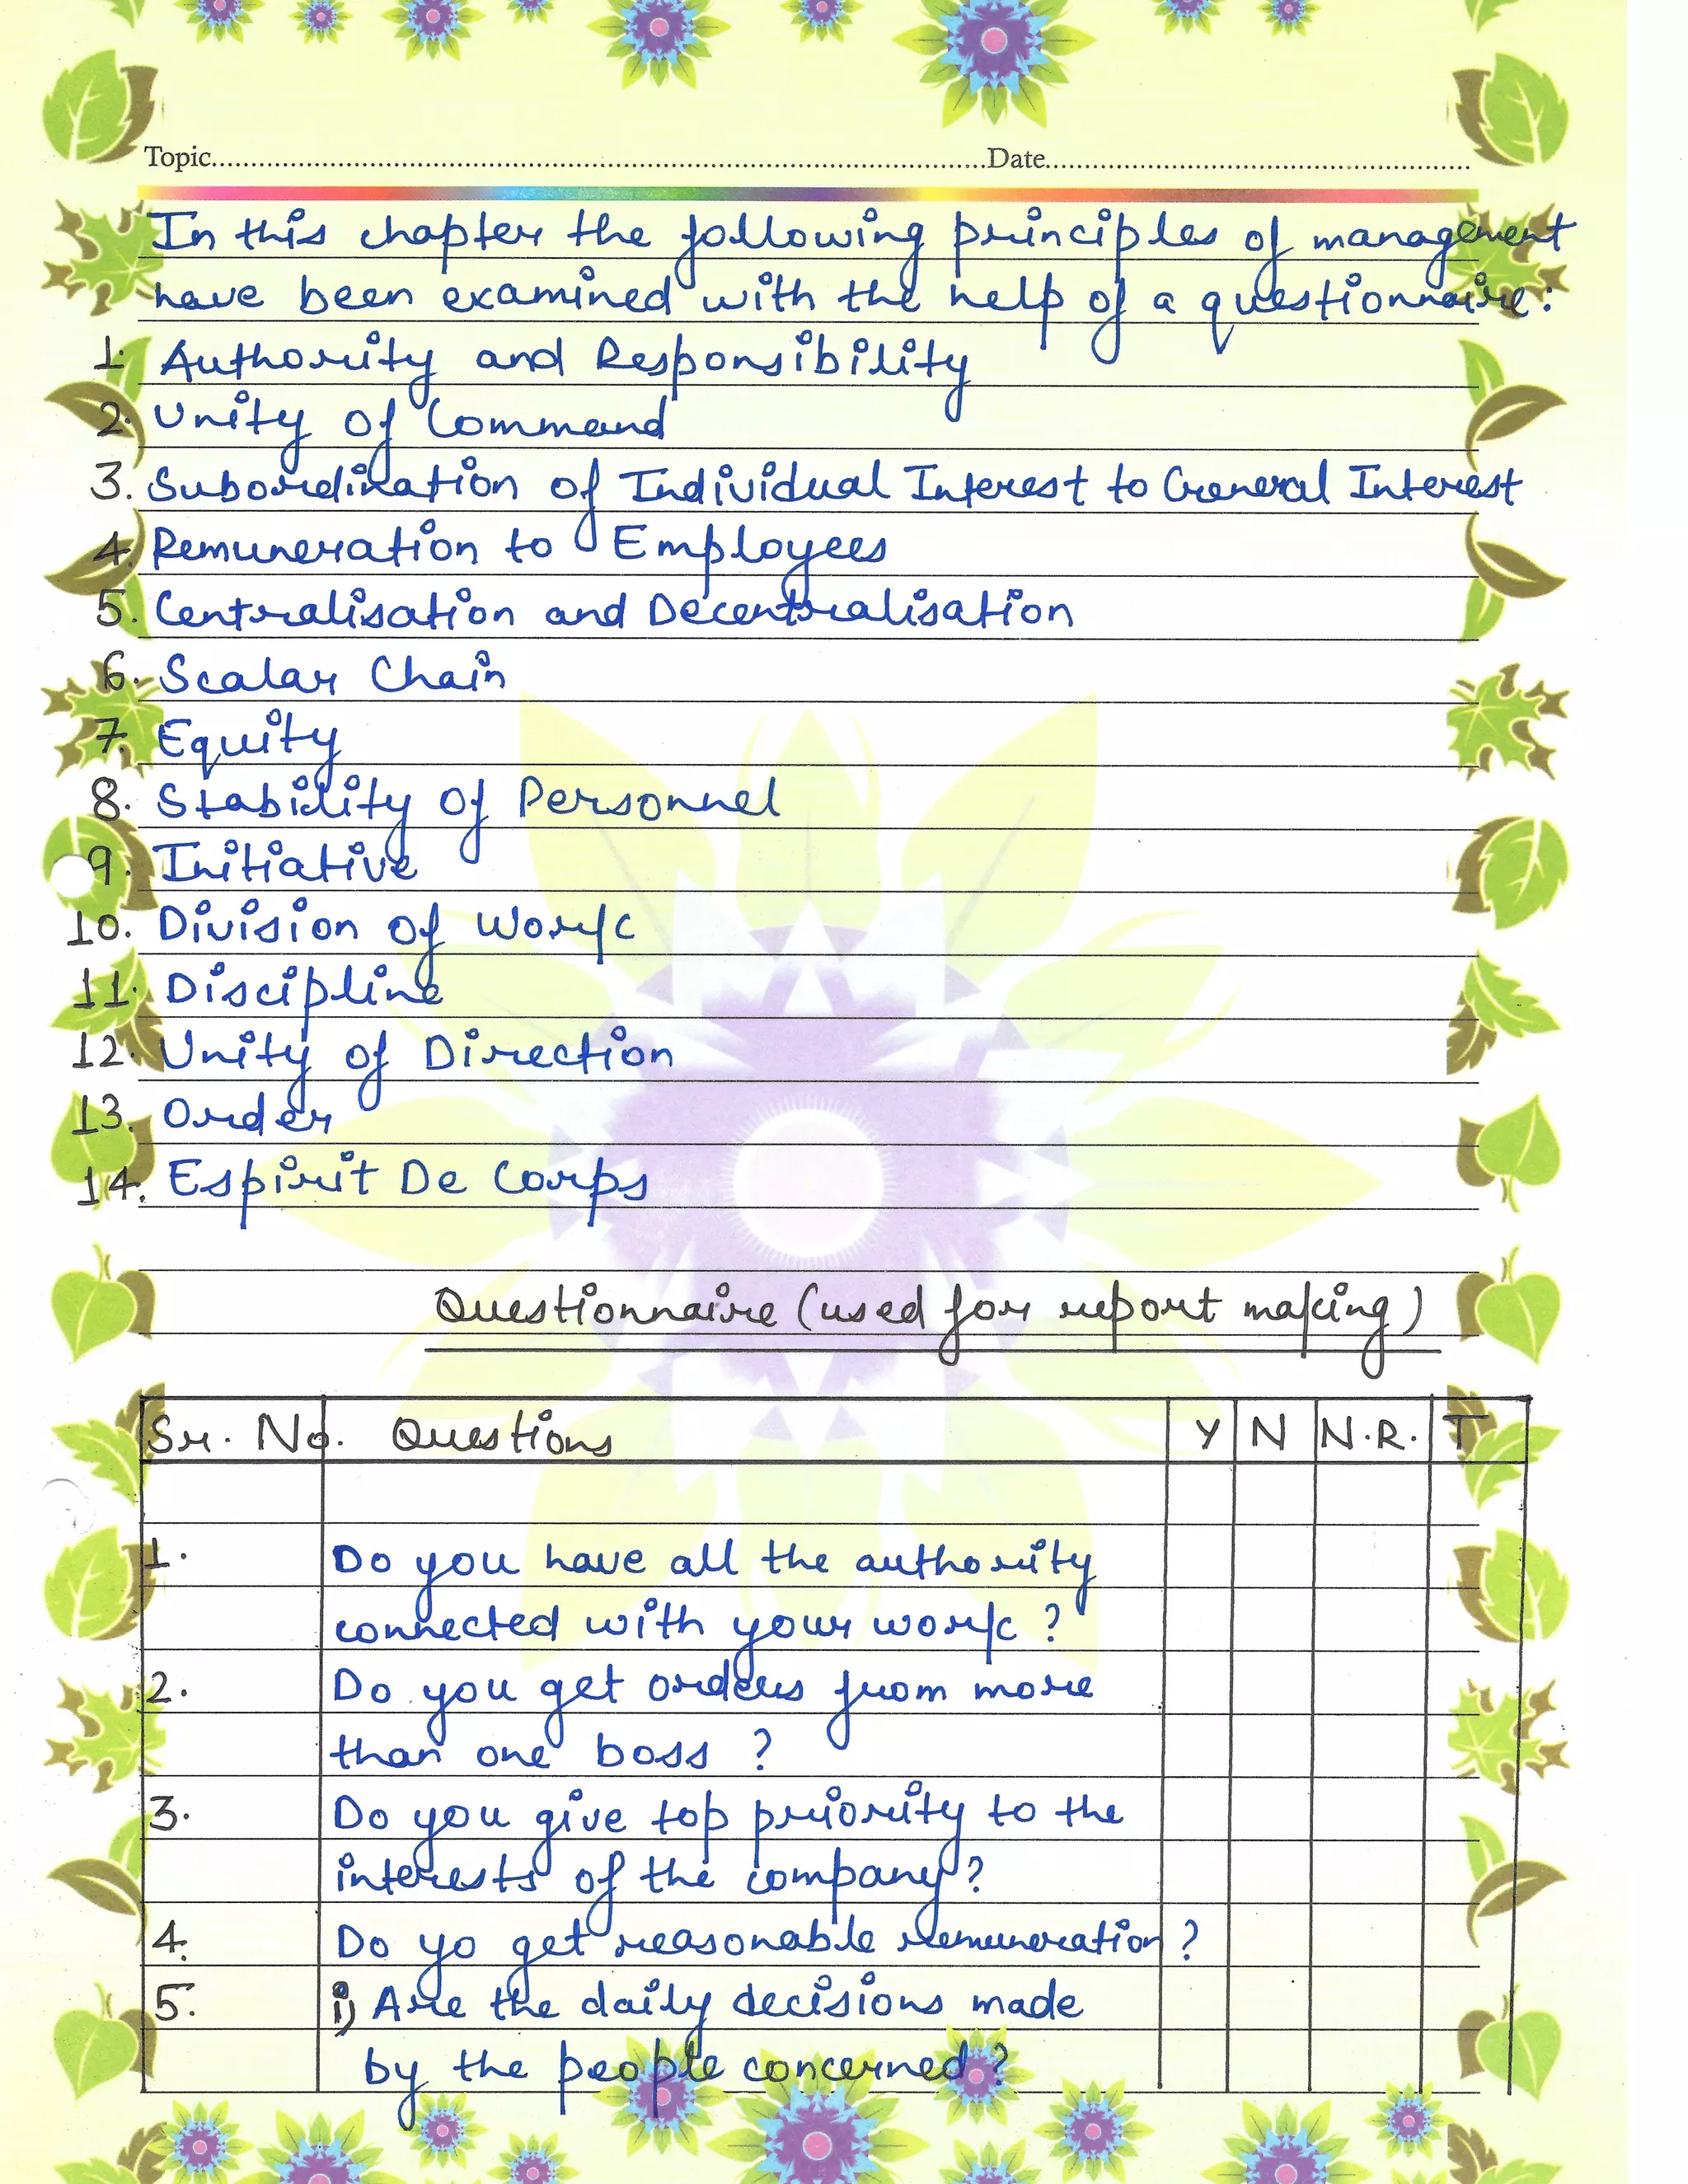 Topic..........Date..........
In this chapter the following principles of management
have been examined with the help of a questionnaire:
1. Authority and Responsibility
2. Unity of Command
3. Subordination of Individual Interest to General Interest
4. Remuneration to Employees
5. Centralisation and Decentralisation
6. Scalar Chain
7. Equity
8. Stability of Personnel
9. Initiative
10. Division of Work
11. Discipline
12. Unity of Direction
13. Order
14. Espirit De Corps
Questionnaire (used for report making)
Sr. No. Questions Y N N.R. T
1. Do you have all the authority
connected with your work ?
2. Do you get orders from more
than one boss ?
3. Do you give top priority to the
interests of the company?
4. Do yo get reasonable remuneration ?
5. i) Are the daily decisions made
by the people concerned ?